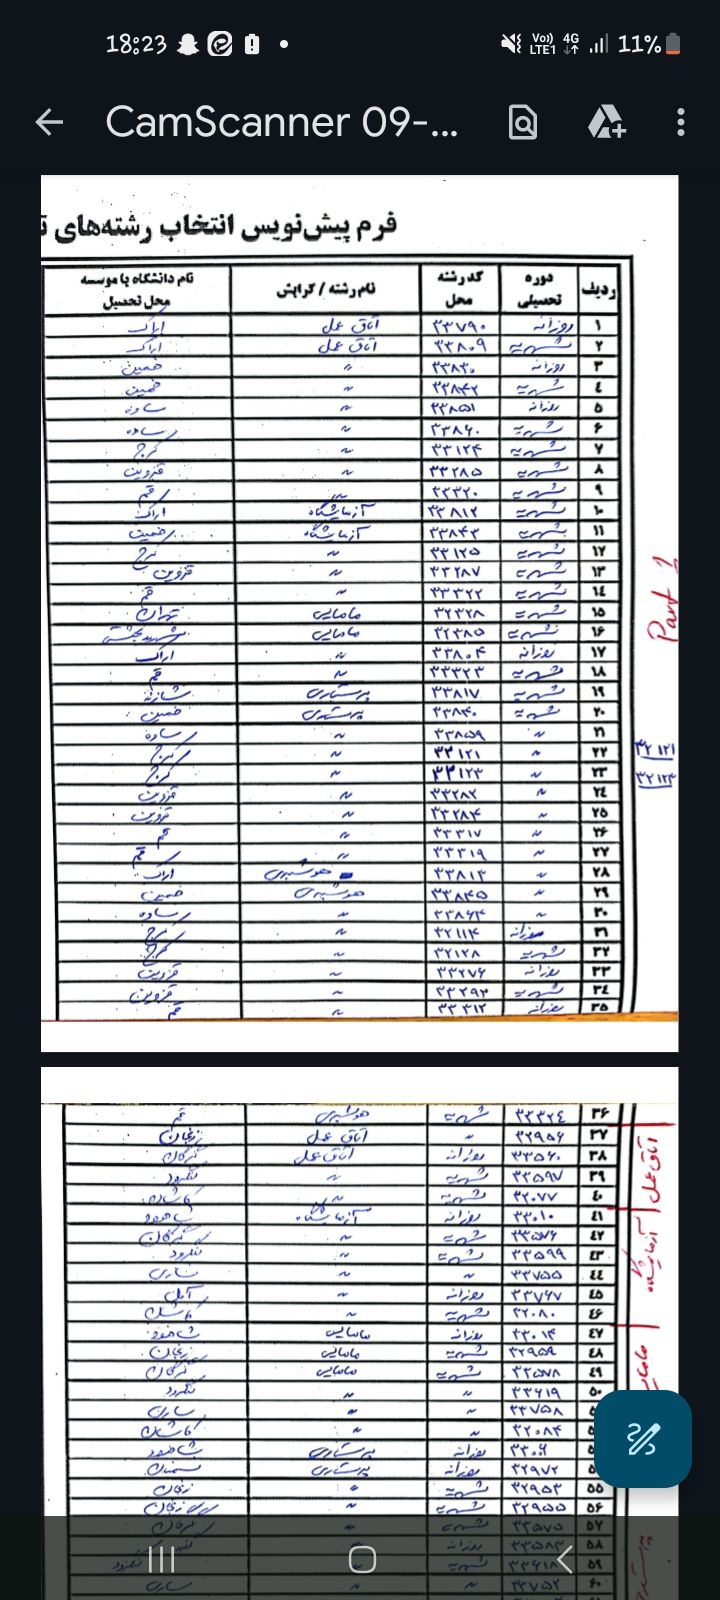 18:23
Vo)) LTE1 4G 11%
CamScanner 09-...
فرم پیش‌نویس انتخاب رشته‌های
ردیف دوره تحصیلی کدرشته محل نام رشته / گرایش نام دانشگاه یا موسسه محل تحصیل
۱ روزانه ۳۳۷۹۰ اتاق عمل اراک
۲ شهریه ۳۳۸۰۹ اتاق عمل اراک
۳ روزانه ۳۳۸۳۰ " خمین
۴ شهریه ۳۳۸۴۲ " خمین
۵ روزانه ۳۳۸۵۱ " ساوه
۶ شهریه ۳۳۸۶۰ " ساوه
۷ شهریه ۳۳۱۲۴ " کرج
۸ شهریه ۳۳۲۸۵ " قزوین
۹ شهریه ۳۳۳۲۰ " قم
۱۰ شهریه ۳۳۸۱۲ آزمایشگاه اراک
۱۱ شهریه ۳۳۸۴۳ آزمایشگاه خمین
۱۲ شهریه ۳۳۱۲۵ " کرج
۱۳ شهریه ۳۳۲۸۷ " قزوین
۱۴ شهریه ۳۳۳۲۲ " قم
۱۵ شهریه ۳۲۳۲۸ مامایی تهران
۱۶ شهریه ۳۲۳۸۵ مامایی شهید بهشتی
۱۷ روزانه ۳۳۸۰۴ " اراک
۱۸ شهریه ۳۳۳۲۳ " قم
۱۹ شهریه ۳۳۸۱۷ پرستاری شازند
۲۰ شهریه ۳۳۸۴۰ پرستاری خمین
۲۱ " ۳۳۸۵۹ " ساوه
۲۲ " ۳۲۱۲۱ " کرج
۲۳ " ۳۲۱۲۳ " کرج
۲۴ " ۳۳۲۸۲ " قزوین
۲۵ " ۳۳۲۸۴ " قزوین
۲۶ " ۳۳۳۱۷ " قم
۲۷ " ۳۳۳۱۹ " قم
۲۸ " ۳۳۸۱۳ هوشبری اراک
۲۹ " ۳۳۸۴۵ هوشبری خمین
۳۰ " ۳۳۸۶۴ " ساوه
۳۱ روزانه ۳۲۱۱۴ " کرج
۳۲ شهریه ۳۲۱۲۸ " کرج
۳۳ روزانه ۳۳۲۷۶ " قزوین
۳۴ شهریه ۳۳۲۹۳ " قزوین
۳۵ روزانه ۳۳۳۱۲ " قم
Part 1
۳۲۱۲۱
۳۲۱۲۳
۳۶ ۳۳۳۲۴ شهریه هوشبری قم
۳۷ ۳۲۹۵۶ " اتاق عمل زنجان
۳۸ ۳۳۵۶۰ روزانه اتاق عمل گرگان
۳۹ ۳۳۵۹۷ شهریه " لنگرود
۴۰ ۳۲۰۷۷ شهریه " کاشان
۴۱ ۳۳۰۱۰ روزانه آزمایشگاه شاهرود
۴۲ ۳۳۵۷۶ شهریه " گرگان
۴۳ ۳۳۵۹۹ شهریه " لنگرود
۴۴ ۳۳۷۵۵ " " ساری
۴۵ ۳۳۷۶۷ روزانه " آمل
۴۶ ۳۲۰۸۰ شهریه " کاشان
۴۷ ۳۳۰۱۴ روزانه مامایی شاهرود
۴۸ ۳۲۹۵۹ شهریه مامایی زنجان
۴۹ ۳۳۵۷۸ شهریه مامایی گرگان
۵۰ ۳۳۶۱۹ " " لنگرود
۳۳۷۵۸ " " ساری
۳۲۰۸۴ " " کاشان
روزانه پرستاری شاهرود
۳۲۹۷۲ روزانه پرستاری سمنان
۵۵ ۳۲۹۵۳ شهریه " زنجان
۵۶ ۳۲۹۵۵ شهریه " زنجان
۵۷ ۳۳۵۷۵ شهریه " گرگان
۵۸ ۳۳۵۸۳ روزانه "
۵۹ ۳۳۶۱۸ شهریه " لنگرود
۶۰ ۳۳۷۵۲ " " ساری
اتاق عمل
آزمایشگاه